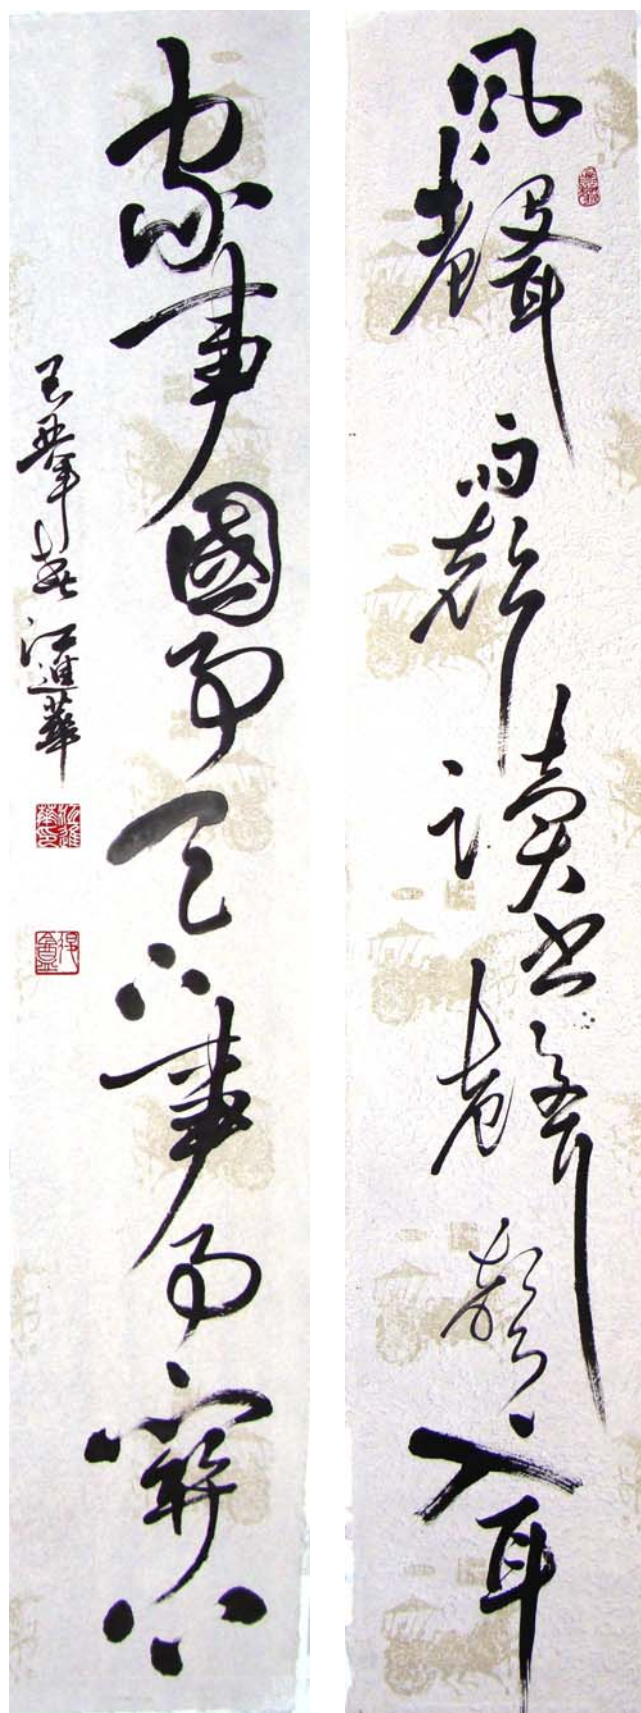 風聲雨聲讀書聲聲聲入耳
家事國事天下事事事關心
己丑年春江進華
江進華印